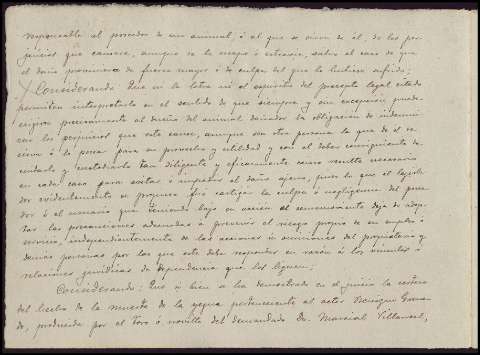 responsable al poseedor de un animal, ó al que se sirve de él, de los per-
juicios que causare, aunque se le escape ó extravíe, salvo el caso de que
el daño proviniera de fuerza mayor ó de culpa del que lo hubiese sufrido;
Considerando: Que ni la letra ni el espíritu del precepto legal citado
permiten interpretarlo en el sentido de que siempre y sin excepción pueda
exigirse precisamente al dueño del animal dañador la obligación de indemni-
zar los perjuicios que este cause, aunque sea otra persona la que de él se
sirva ó lo posea para su provecho y utilidad y con el deber consiguiente de
cuidarlo y custodiarlo tan diligente y eficazmente como resulte necesario
en cada caso para evitar ó impedir el daño ajeno, pues lo que el legisla-
dor evidentemente se propuso fué castigar la culpa ó negligencia del posee-
dor ó el usuario que teniendo bajo su acción al semoviente deja de adop-
tar las precauciones adecuadas á prevenir el riesgo propio de su empleo ó
servicio, independientemente de las acciones ú omisiones del propietario y
demás personas por las que este deba responder en razón á los vínculos ó
relaciones jurídicas de dependencia que los liguen;
Considerando: Que si bien se ha demostrado en el juicio la certeza
del hecho de la muerte de la yegua perteneciente al actor Enrique
producida por el toro ó novillo del demandado Dn. Marcial Villanuel,